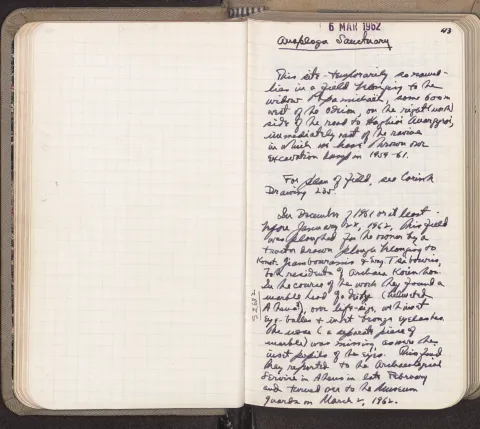 6 MAR 1962
43
Anaploga Sanctuary
This site - temporarily so named -
lies in a field belonging to the
widow Papamichael, some 600 m
west of the Odeion on the right hand
side of the road to Haghioi Anargyroi,
immediately west of the ravine
in which we have thrown our
excavation dump in 1959-61.
For plan of field, see Corinth
Drawing
In December of 1961 or at least
before January 1962, this field
was ploughed for the owner by a
tractor drawn plough belonging to
Konst. Giambouranis & Evg.
both residents of Archaia Korinthos.
In the course of the work they found a
marble head of
over life-size, with inset
eye-balls & with bronze eyelashes.
The nose (a separate piece of
marble) was missing, as were the
inset pupils of the eyes. This find
they reported to the Archaeological
Service in Athens in late February
and turned over to the Museum
guards on March 2, 1962.